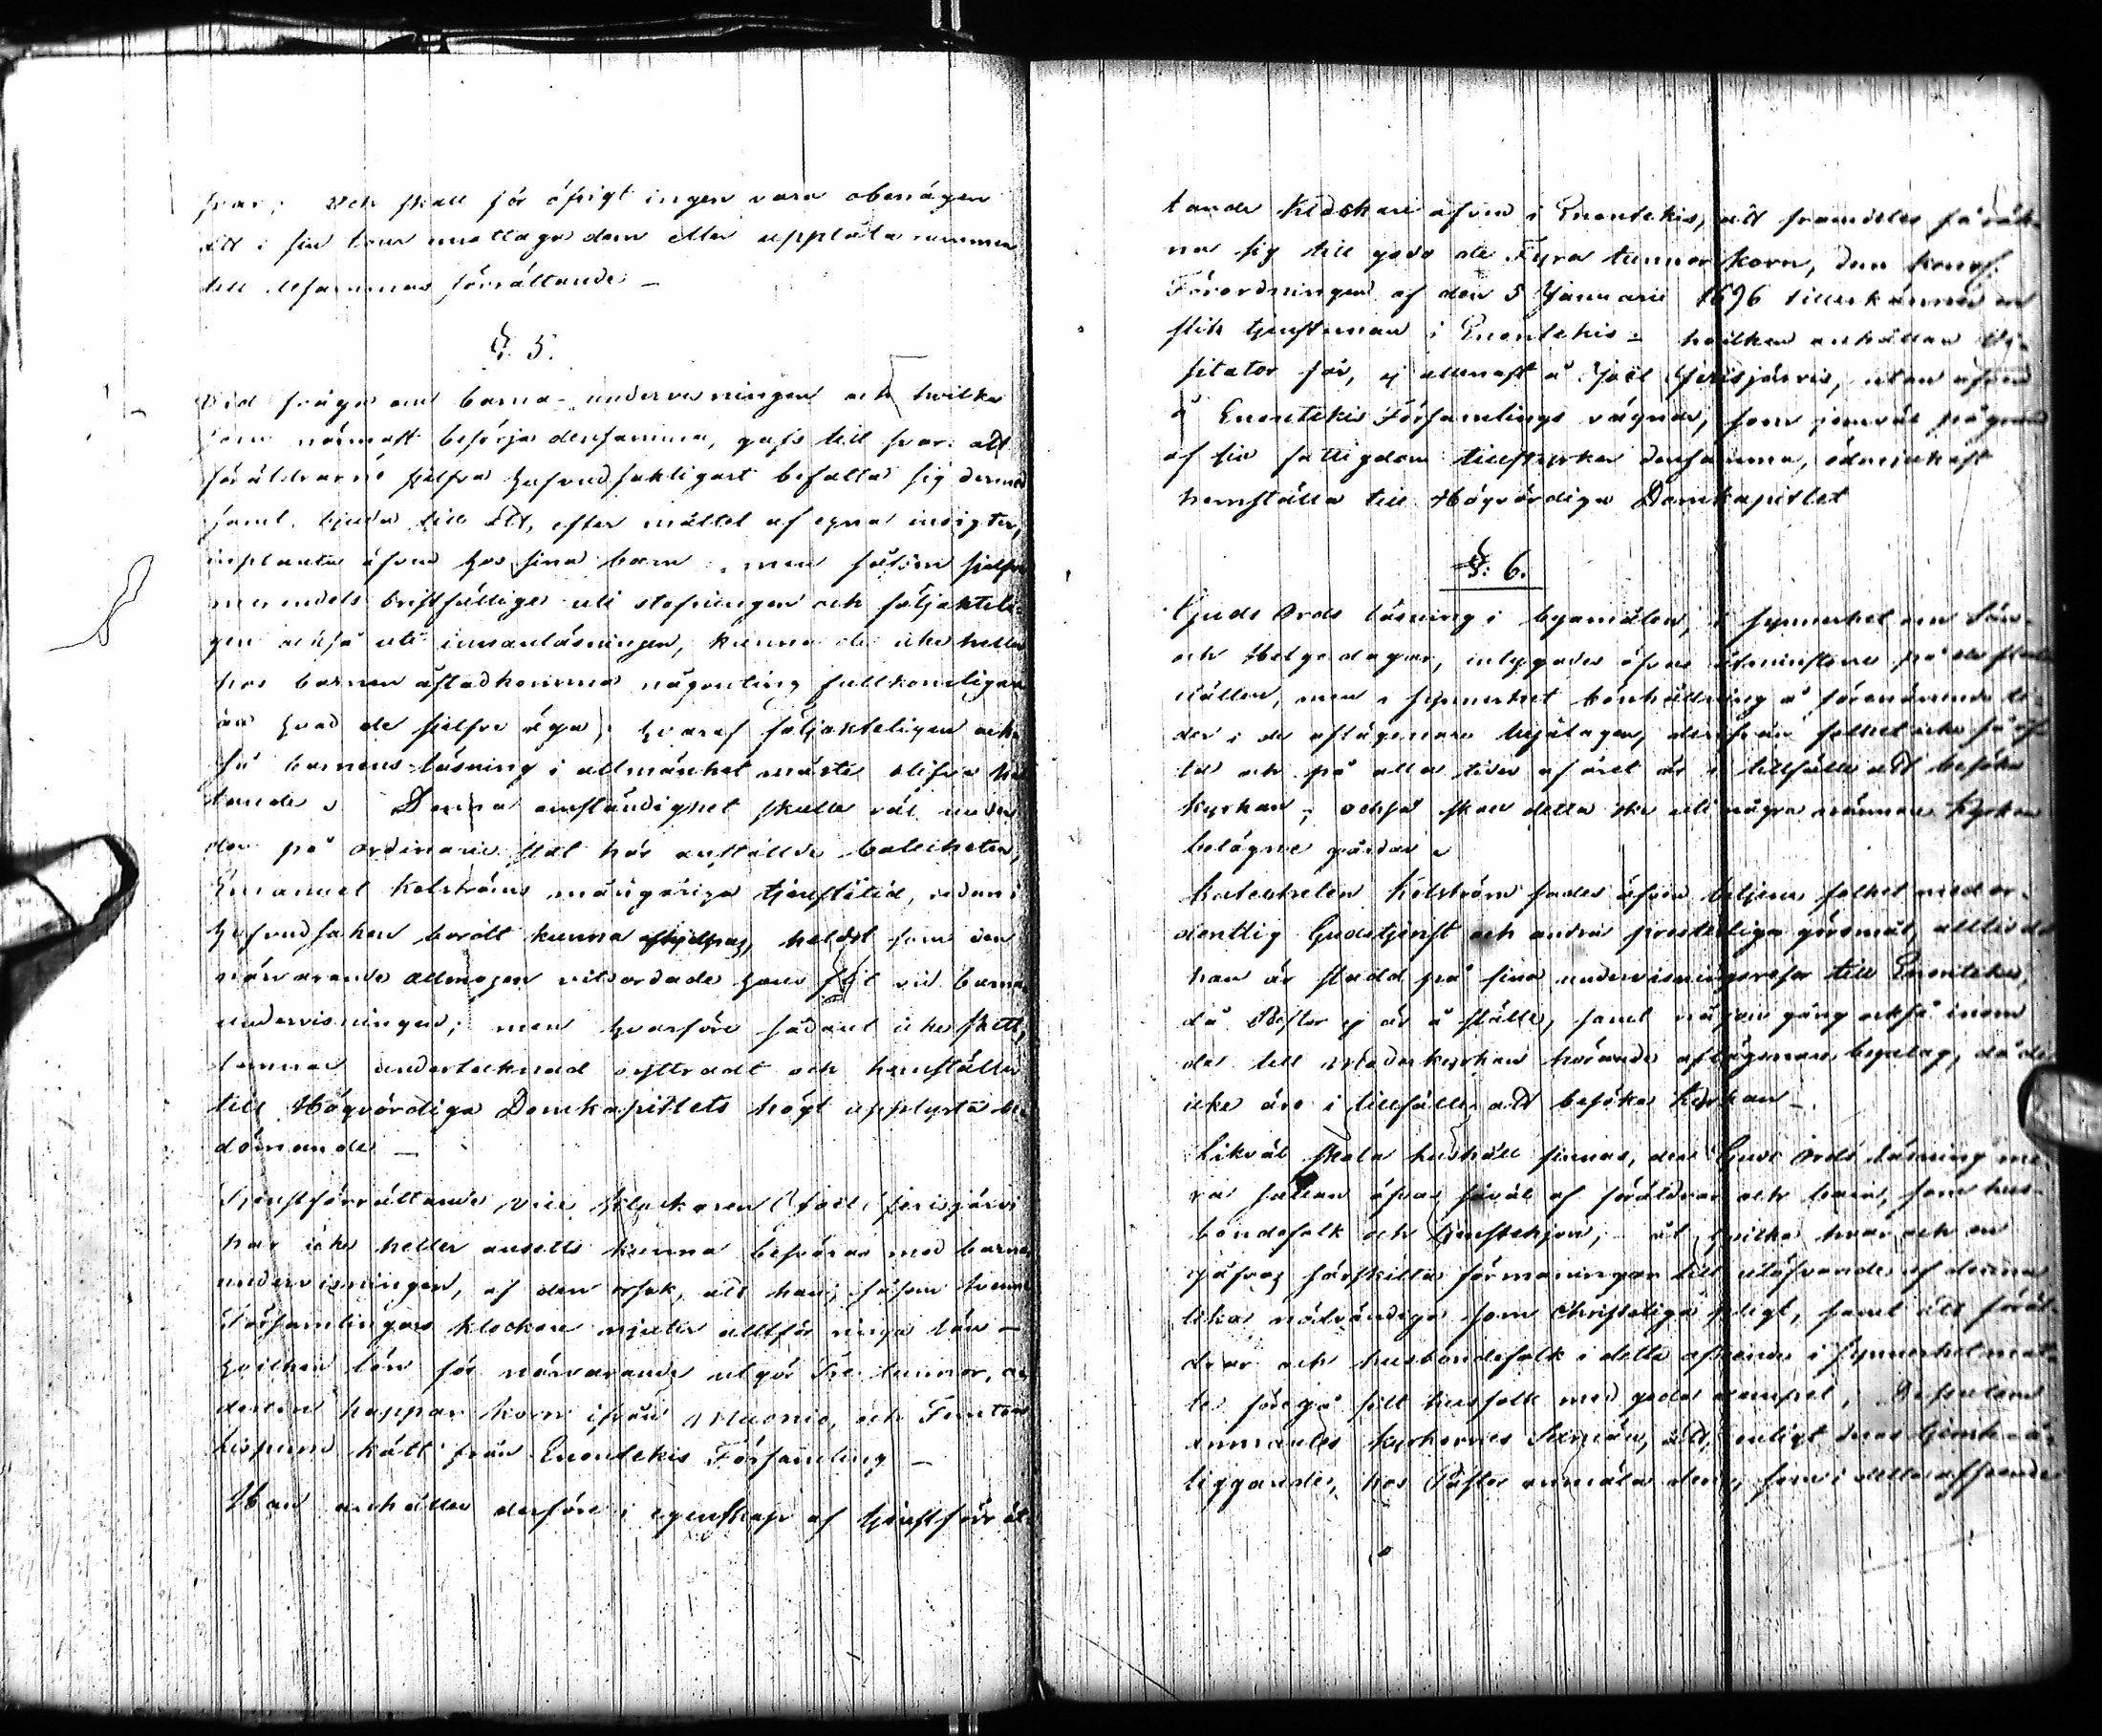 svar; Och skall för öfrigt ingen vara obenägen
att i sin tour emottaga dem eller upplåta rummen
till desammas förrättande –
§. 5.
Vid fråga om barna-undervisningen och hvilka
som närmast besörja densamma, gafs till svar: att
föräldrarne sjelfva hufvudsakligast befatta sig dermed
samt bjuda till att, efter måttet af egna insigter,
inplanta äfven hos sina barn; men såsom sjelfva
merendels bristfällige uti stafningen och följakteli-
gen också uti innanläsningen, kunna de icke heller
hos barnen åstadkomma någonting fullkomligare
än hvad de sjelfve äga; hvaraf följakteligen ock-
så barnens läsning i allmänhet måste blifva
tande. Denna omständighet skulle väl under
den på ordinarie stat här anställde Catecheten,
Emanuel Kolströms mångåriga tjenstetid, redan i
hufvudsaken bordt kunna afhjelpas, heldst som den
närvarande allmogen vitsordade hans flit vid barna
undervisningen; men hvarföre sådant icke skett,
lemnar undertecknad oyttradt och hemställer
till Högvördiga Domkapitlets högt upplysta be-
dömande –
Tjenstförrättande vice klockaren Joel Jerisjärvi
har icke heller ansetts kunna besväras med barna
undervisningen, af den orsak, att han, såsom tvenne
Församlingars klockare njuter alltför ringa lön –
hvilken lön för närvarande utgör Tre tunnor,
derton kappar korn ifrån Muonio, och Femton
lispund kött från Enontekis Församling –
Han anhåller derföre i egenskap af tjenstförrät-
tande klockare äfven i Enontekis, att framdeles få räk-
na sig till godo de Fyra tunnor korn, den kongl.
Förordningen af den 5 Januarii 1696 tillerkänner en
slik tjensteman i Enontekis – hvilken anhållan Vi-
sitator får, ej allenast å Joel Jerisjärvis, utan äfven
å Enontekis Församlings vägnar, som jemväl på grund
af sin fattigdom tillstyrker densamma, ödmjukast
hemställa till Högvördiga Domkapitlet
§. 6.
Guds Ords läsning i byamålen, i synnerhet om Sön-
och Helgedagar, inlyggades äfven åtminstone på de flesta
ställen, men i synnerhet bönhållning å förenämnde ti-
der i de aflägsnare byalagen, derifrån folket icke så of-
ta och på alla tider af året är i tillfälle att besöka
kyrkan; också skall detta ske uti några närmare kyrkan
belägne gårdar.
Katecheten Kolström sades äfven betjena folket med or-
dentlig Gudstjenst och andra presterliga göromål, alltid då
han är stadd på sina undervisningsresor till Enontekis,
då Pastor ej är å stället, samt någon gång också inom
de till Moderkyrkan hörande aflägsnare byalag, då de
icke äro i tillfälle att besöka kyrkan –
Likväl skola hushåll finnas, der Guds Ords läsning me-
ra sällan öfvas såväl af föräldrar och barn, som hus-
bondefolk och tjenstehjon, – åt hvilka hvar och en
gåfvos särskilta förmaningar till utöfvande af denna
lika nödvändiga som Christeliga pligt, samt att föräl-
drar och husbondefolk i detta afseende i synnerhet måt-
te föregå sitt husfolk med goda exempel. Dessutom
anmantes kyrkornes Sexmän, att, enligt deras tjenste å-
liggande, hos Pastor anmäla dem, som i detta afseende